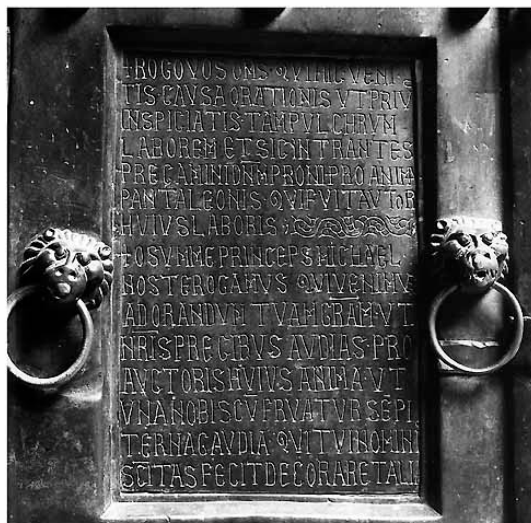 +ROGO VOS OMS · QVI HIC VENI
TIS CAVSA ORATIONIS VT PRIV
INSPICIATIS · TAM PVLCHRVM
LABOREM ET SIC INTRANTES
PRECAMINI DNM PRONI · PRO ANIM
PANTALEONIS · QVI FVIT AVTOR
HVIVS LABORIS ·
+O SVMME PRINCEPS MICHAEL
NOSTE ROGAMVS · QVI VENIMV
ADORANDVM TVAM GRAM · VT
NRIS PRECIBVS AVDIAS · PRO
AVCTORIS HVIVS ANIMA · VT
VNA NOBISCV FRVATVR SEPI
TERNA GAVDIA · QVI TVI NOMINI
SCITAS FECIT DECORARE TALI